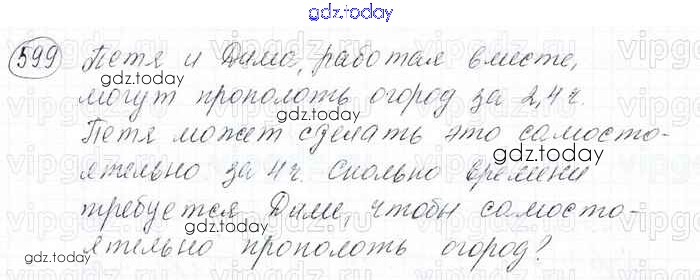 gdz.today
599 Петя и Дима, работая вместе,
gdz.today
могут прополоть огород за 2,4 ч.
gdz.today
Петя может сделать это самосто-
gdz.today
ятельно за 4 ч. Сколько времени
gdz.today
требуется Диме, чтобы самосто-
gdz.today
ятельно прополоть огород?
gdz.today